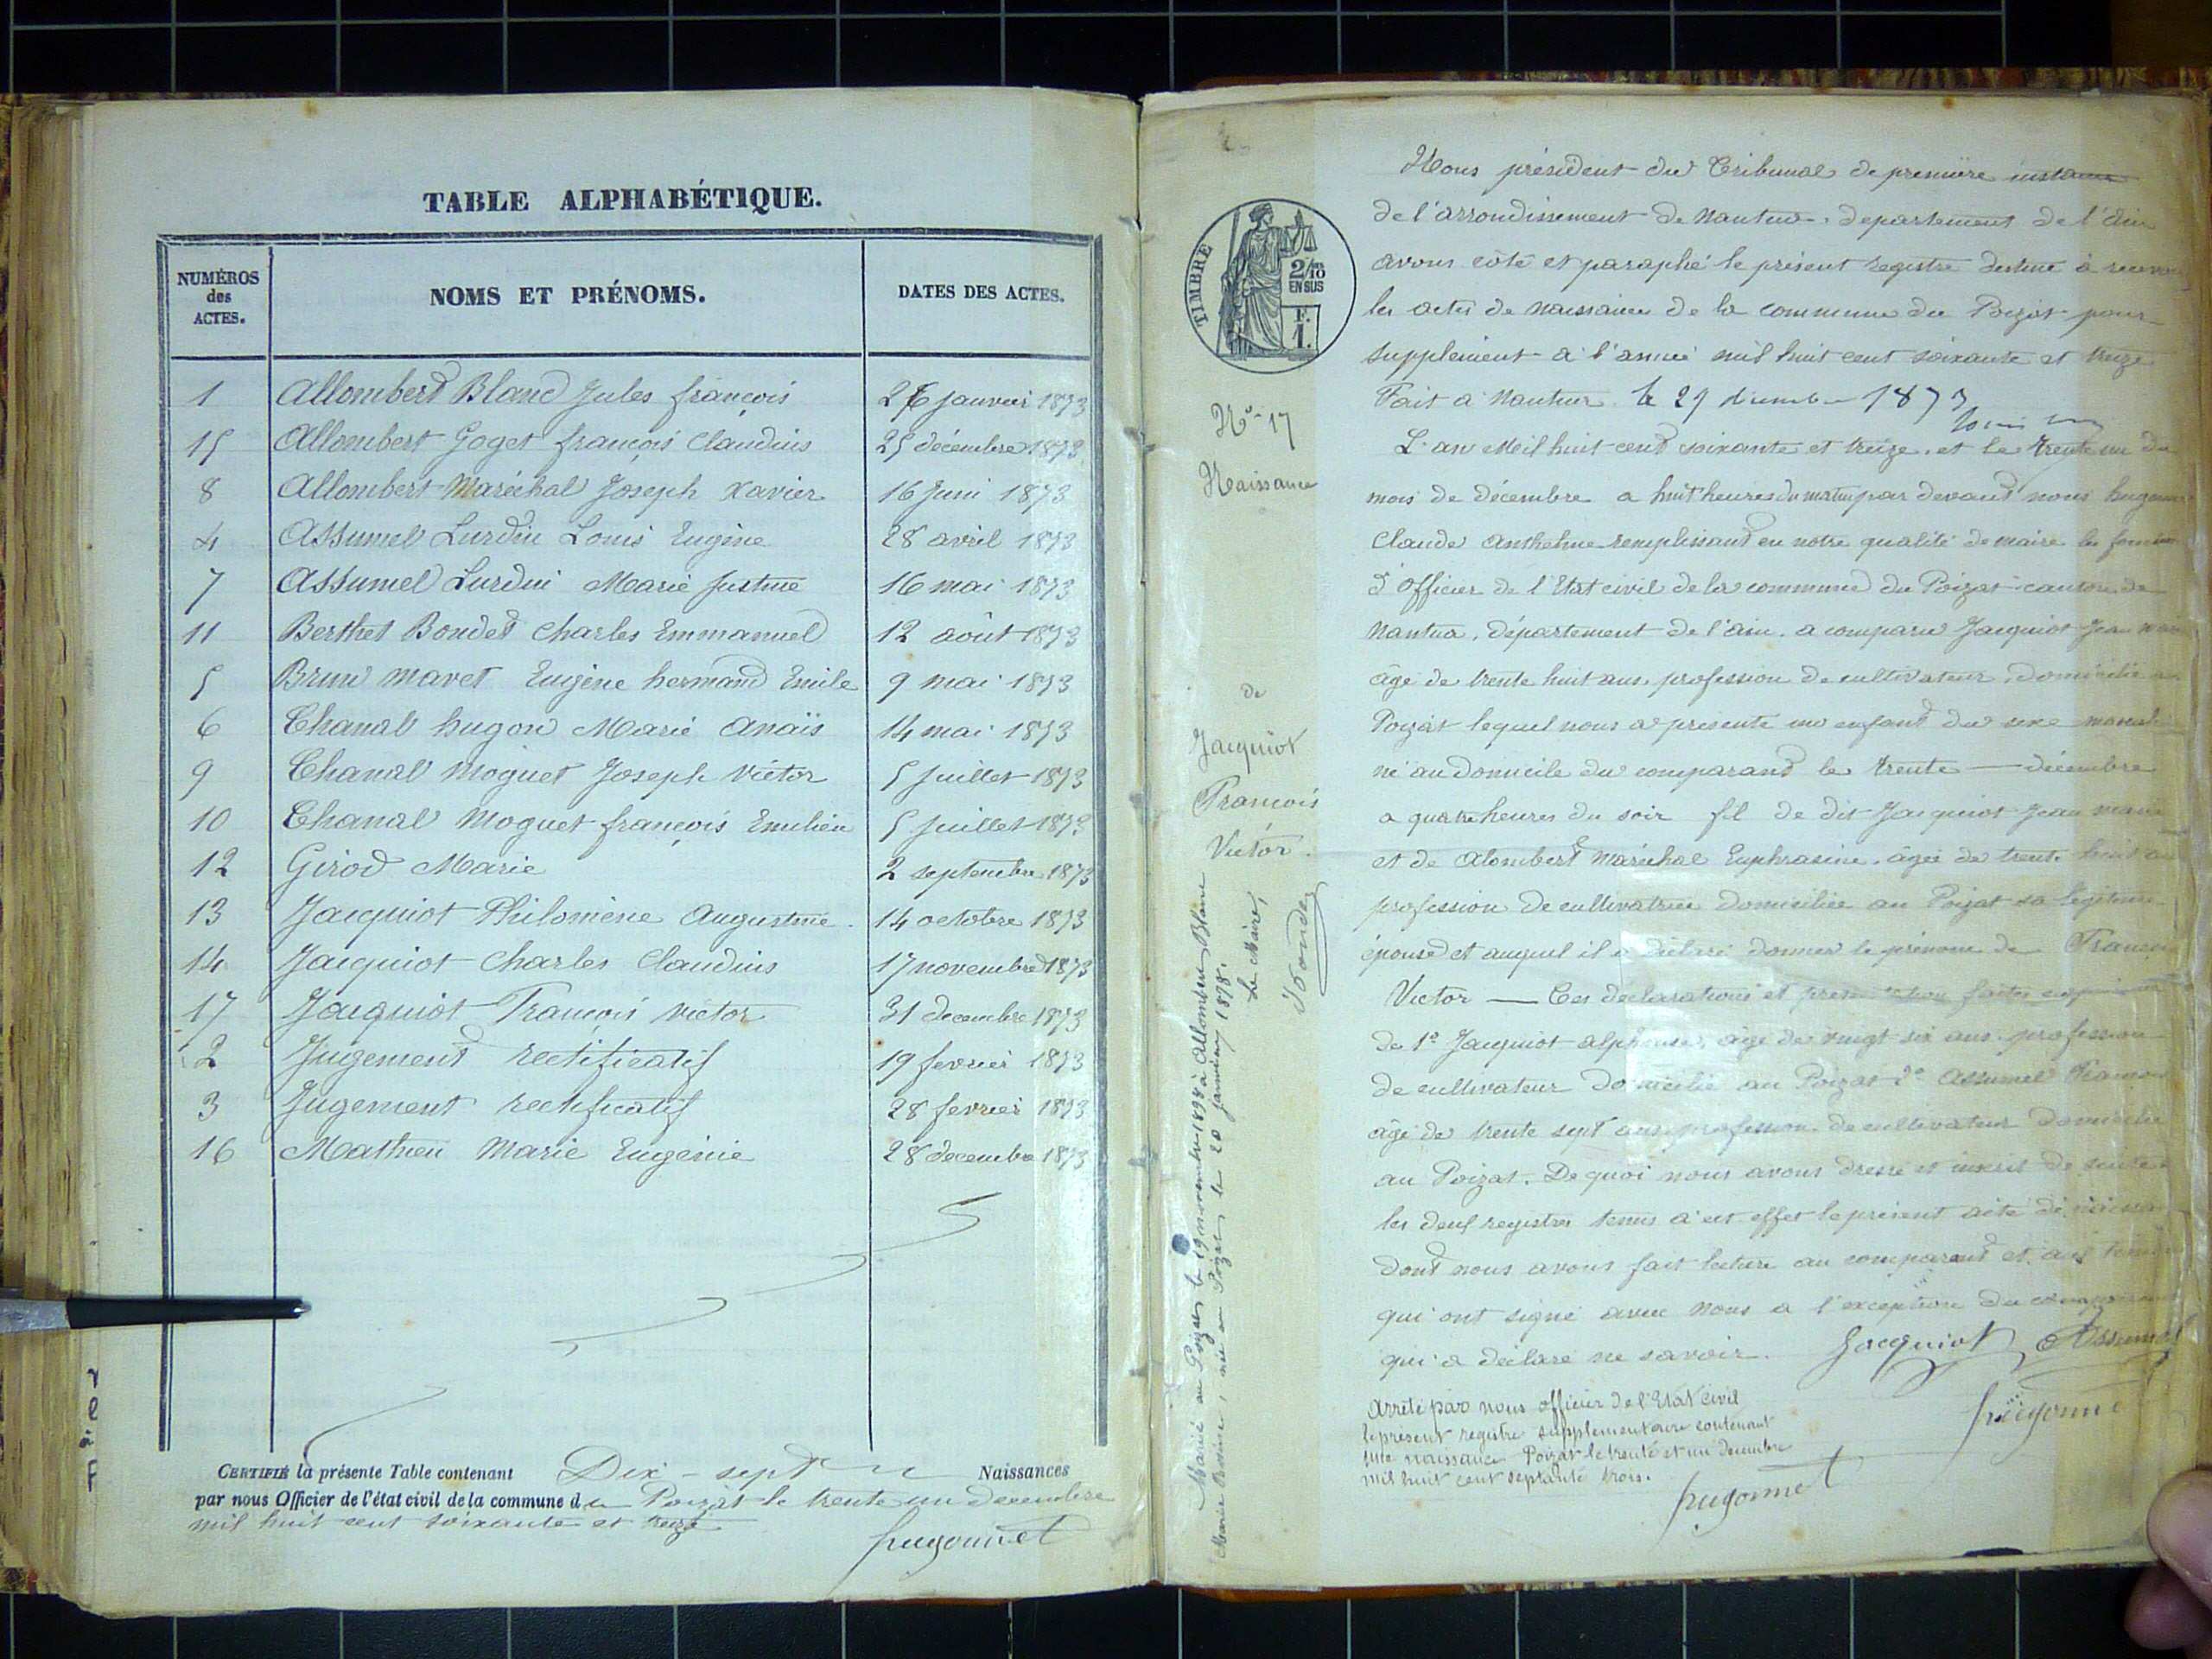 TABLE ALPHABÉTIQUE.
NUMÉROS des ACTES.
NOMS ET PRÉNOMS.
DATES DES ACTES.
1 Allombert Blanc Jules françois 26 janvier 1873
15 Allombert Goget françois Claudius 25 décembre 1873
8 Allombert Maréchal Joseph Xavier 16 Juin 1873
4 Assumel Lurdin Louis Eugène 28 avril 1873
7 Assumel Lurdin Marie Justine 16 mai 1873
11 Berthet Bondet Charles Emmanuel 12 août 1873
5 Brun Mavet Eugène hermand Emile 9 mai 1873
6 Chanal hugon Marie Anaïs 14 mai 1873
9 Chanal Moguet Joseph Victor 5 Juillet 1873
10 Chanal Moguet françois Emilien 5 Juillet 1873
12 Girod Marie 2 septembre 1873
13 Jacquiot Philomène Augustine. 14 octobre 1873
14 Jacquiot Charles Claudius 17 novembre 1873
17 Jacquiot François Victor 31 decembre 1873
2 Jugement rectificatif 19 fevrier 1873
3 Jugement rectificatif 28 fevrier 1873
16 Mathieu Marie Eugénie 28 decembre 1873
CERTIFIÉ la présente Table contenant Dix-sept Naissances
par nous Officier de l'état civil de la commune du Poizat le trente un decembre
mil huit cent soixante et treize
hugonnet
TIMBRE
2/10
EN SUS
F.
1.
Nous président du Tribunal de première instance
de l'arrondissement de Nantua, departement de l'ain
avons côté et paraphé le présent registre destiné à recevoir
les actes de naissances de la commune du Poizat pour
supplement à l'année mil huit cent soixante et treize
Fait a Nantua le 29 decembre 1873
No 17
Naissance
de
Jacquiot
François
Victor.
Marié au Poizat le 19 novembre 1898 à Allombert Blanc
Marie , née au Poizat, le 20 janvier 1878.
Le Maire,
L'an Mil huit cent soixante et treize. et le trente un du
mois de décembre a huit heures du matin par devant nous hugonnet
Claude Anthelme remplissant en notre qualité de maire les fonctions
d'Officier de l'Etat civil de la commune du Poizat canton de
Nantua, département de l'ain. a comparu Jacquiot Jean marie
âgé de trente huit ans, profession de cultivateur, domicilié au
Poizat lequel nous a présenté un enfant du sexe masculin
né au Domicile du comparant le trente — décembre
a quatre heures du soir fil de dit Jacquiot Jean marie
et de Alombert Maréchal Euphrasine. âgée de trente huit ans
profession de cultivatrice Domiciliée au Poizat sa légitime
épouse et auquel il a déclaré donner le prénom de François
Victor — Ces déclarations et presentation faites en présence
de 1o Jacquiot alphonse, âgé de vingt six ans. profession
de cultivateur domicilié au Poizat 2o Assumel
âgé de trente sept ans profession de cultivateur Domicilié
au Poizat. De quoi nous avons dressé et inscrit de suite
les deux registres tenus à cet effet le présent acte de naissance
Dont nous avons fait lecture au comparant et aux temoins
qui ont signé avec nous a l'exception du comparant
qui a déclaré ne savoir. Jacquiot Assumel
hugonnet
Arrêté par nous officier de l'Etat civil
le présent registre supplémentaire contenant
une naissance Poizat le trente et un decembre
mil huit cent septante trois.
hugonnet